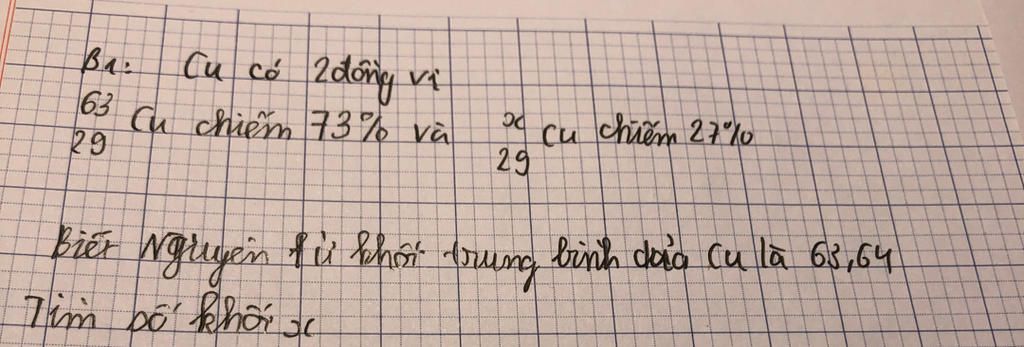 B1: Cu có 2 đồng vị
63 29 Cu chiếm 73% và x 29 Cu chiếm 27%
Biết Nguyên tử khối trung bình của Cu là 63,64
Tìm số khối x